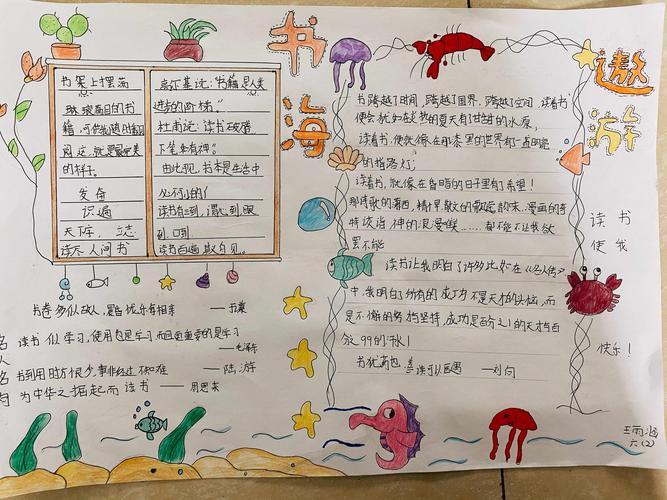 书海
遨游
书桌上摆满
琳琅满目的书
籍,可供我随时翻
阅这就是最美
的样子。
发奋
识遍
天下字,立志
读尽人间书
高尔基说:"书籍是人类
进步的阶梯。"
杜甫说:读书破
下笔如有神"。
由此可见,书本是生活中
必不可少的!
读书有三到,谓心到眼
到口到
读书百遍其义自见。
书跨越了时间,跨越了国界,跨越了空间,读着书
便会犹如炎热的夏天有甘甜的水源,
读着书,便就像在那漆黑的世界有一点明亮
的指路灯;
读着书,就像在昏暗的日子里有了希望!
神的浪漫
罢不能
读书让我明白了许多比如在《名人传》
中,我明白了所有的成功不是天才的头衔,而
是不懈的努力坚持,成功是百分之1的天才与百
分之99的汗水!
书犹药也,善读可以医愚 — 刘向
读书
使我
快乐!
书卷多似故人,晨昏忧乐每相亲 — 于谦
名人名句
读书是学习,使用也是学习,而且更重要的是学习
— 毛泽东
书到用时方恨少,事非经过不知难 — 陆游
为中华之掘起而读书 — 周恩来
王雨涵
六(2)